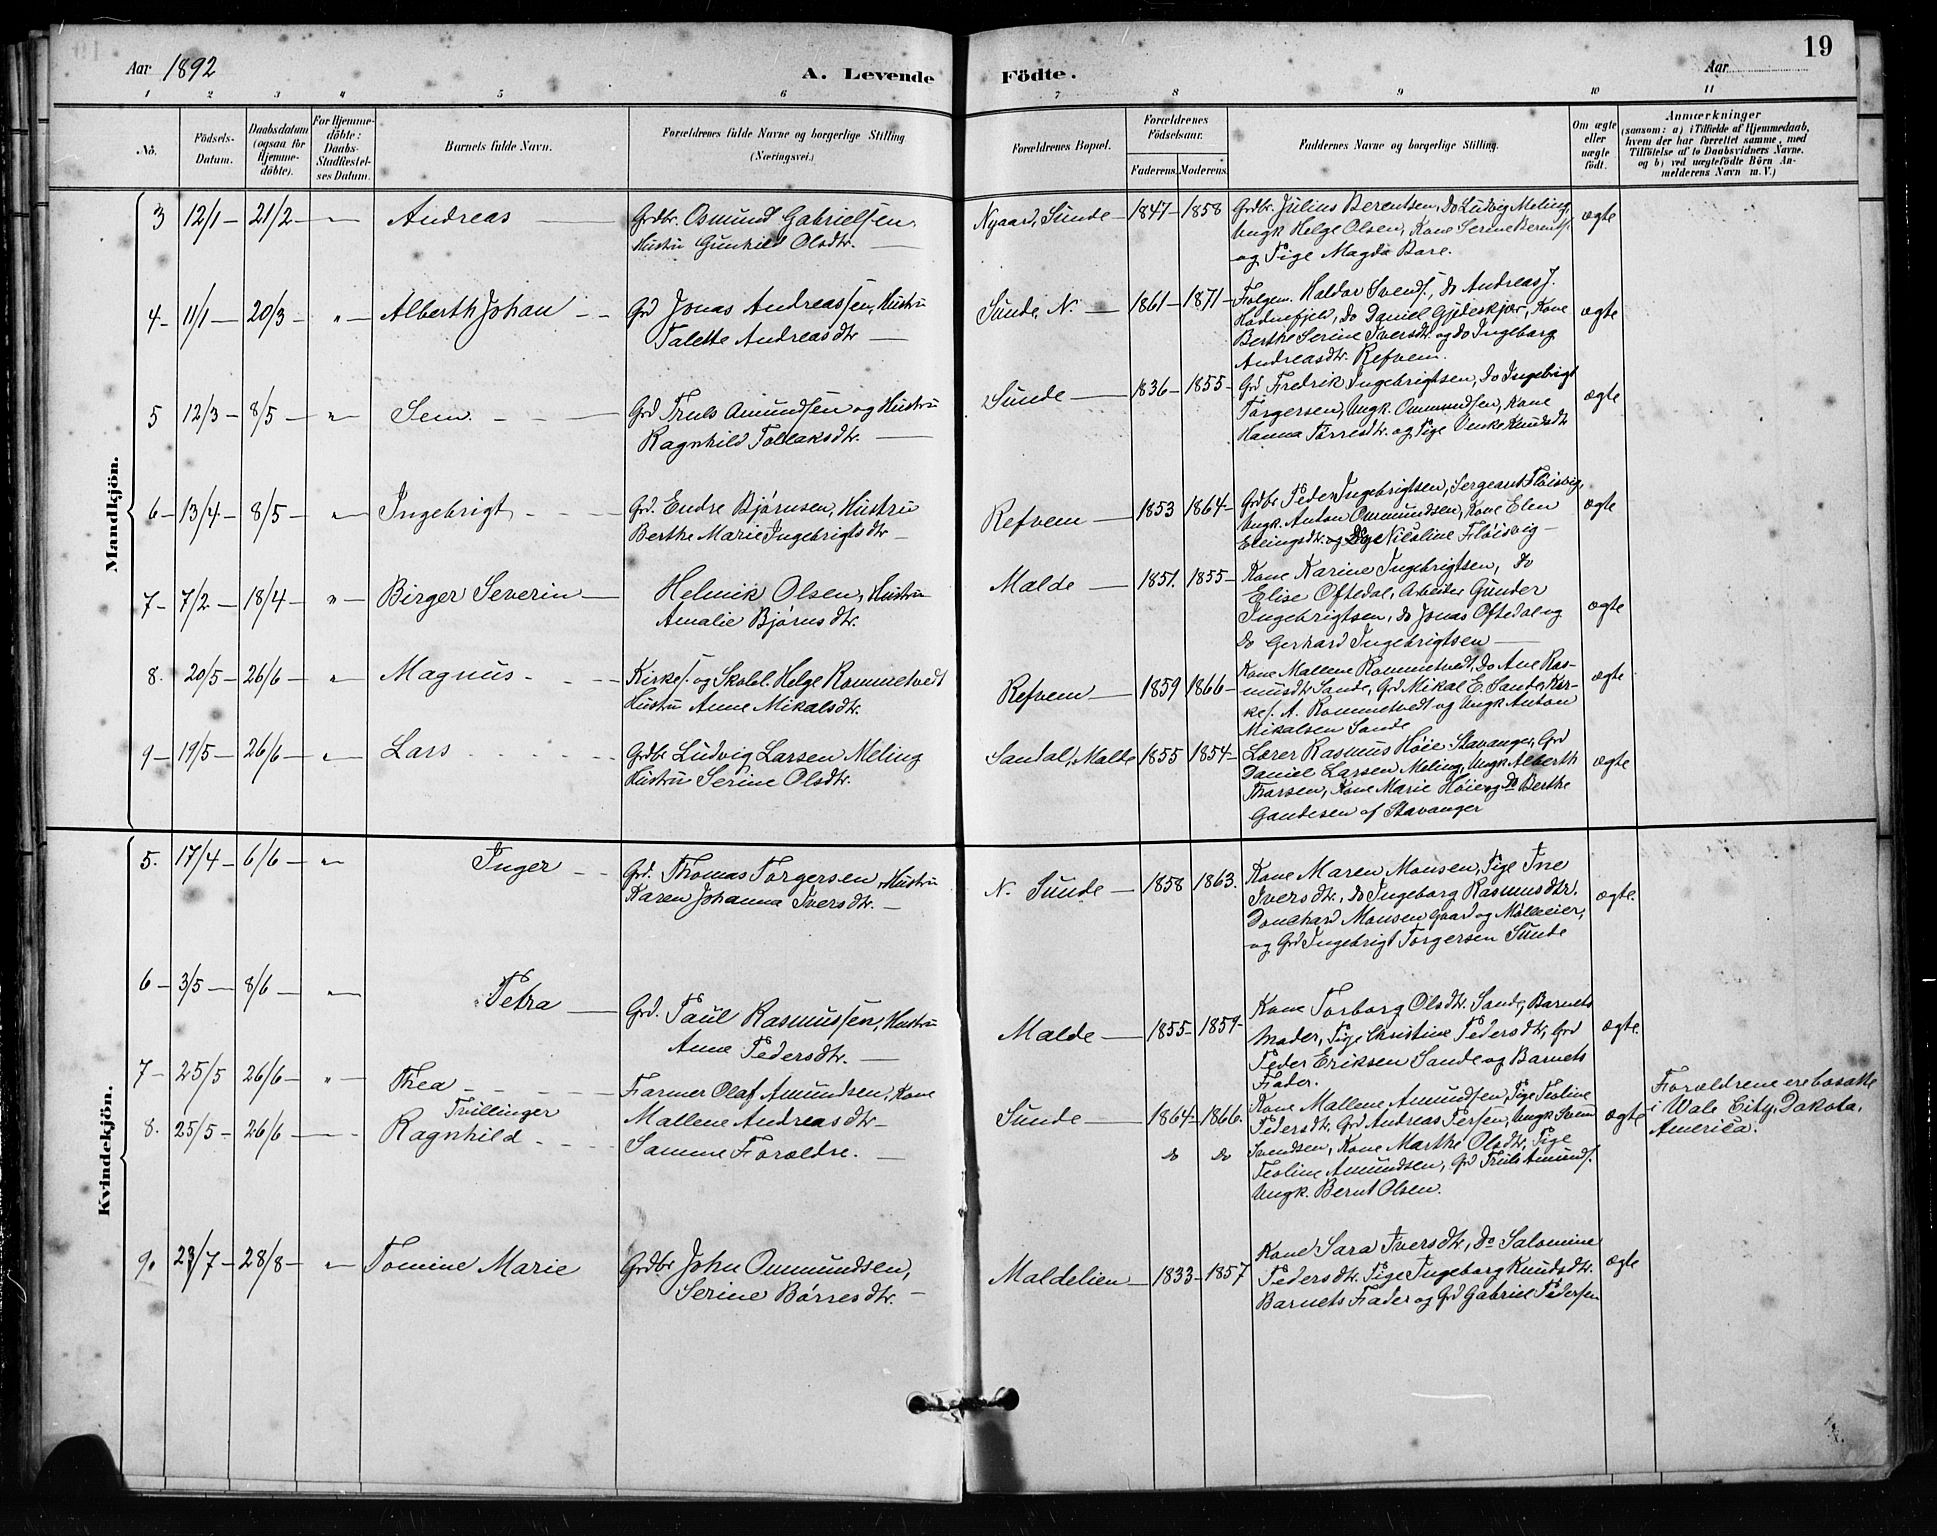 Aar 1892
A. Levende Födte.
Aar
19
1 2 3 4 5 6 7 8 9 10 11
No.
Födsels-Datum.
Daabsdatum (ogsaa for Hjemme-döbte).
For Hjemme-döbte: Daabs-Stadfæstel-ses Datum.
Barnets fulde Navn.
Forældrenes fulde Navne og borgerlige Stilling (Næringsvei.)
Forældrenes Bopæl.
Forældrenes Födselsaar.
Faderens. Moderens.
Faddernes Navne og borgerlige Stilling.
Om ægte eller uægte födt.
Anmærkninger
(saasom: a) i Tilfælde af Hjemmedaab, hvem der har forrettet samme, med Tilföielse af to Daabsvidners Navne. og b) ved uægtefödte Börn An-melderens Navn m. V.)
Mandkjön.
3 12/1 — 21/2 — " — Andreas —
Grdbr. Osmund Gabrielsen
Hustru Gunhild Olsdtr. —
Nyaard, Sunde — 1847 — 1858
Grdbr. Julius Berentsen, Do Ludvig Meling
Ungk Helge Olsen, Kone Serine Berents.
og Pige Magda Bare.
ægte
4 — 11/1 — 20/3 — " — Alberth Johan — —
Grd Jonas Andreassen, Hustru
Talette Andreasdtr —
Sunde, N. — 1861 — 1871 —
Folgem. Haldor Svends., do Andreas J.
Hodnefjeld, Do Daniel Gjileskjær, Kone
Berthe Serine Iversdtr og do Ingeborg
Andreasdtr. Refvem.
ægte
5 12/3 — 8/5 — " — Sem. — — —
Grd Truls Amundsen og Hustru
Ragnhild Tollaksdtr. —
Sunde — 1836 — 1855 —
Grd Fredrik Ingebrigtsen, Do Ingebrigt
Torgersen, Ungk. Ommundsen, Kone
Hanna Torresdtr. og Pige Venke Knudsdtr
ægte
6 — 13/4 — 8/5 — " — Ingebrigt — — —
Grd. Endre Bjørnsen, Hustru
Berthe Marie Ingebrigtsdtr —
Refvem — 1853 1864 —
Grdbr Peder Ingebrigtsen, Sergeant Fløisvig,
Ungk. Anton Ommundsen, Kone Elen
Ellingsdtr. og Nicoline Fløisvig —
ægte
7 — 7/2 — 18/4 — " — Birger Severin —
Helmik Olsen, Hustru
Amalie Bjørnsdtr.
Malde — 1851. 1855 —
Kone Karine Ingebrigtsen, Do
Elise Oftedal, Arbeider Gunder
Ingebrigtsen, do Jonas Oftedal og
Do Gerhard Ingebrigtsen —
ægte
8. 20/5 — 26/6 — " — Magnus — — —
Kirkes. og Skolel. Helge Rommetvedt
Hustru Anne Mikalsdtr.
Refvem — 1859 1866 —
Kone Mallene Rommetvedt, Do Ane Ras-
musdtr Sande, Grd Mikal E. Sande, Kir-
kes. A. Rommetvedt og Ungk Anton
Mikalsen Sande
ægte
9 — 19/5 — 26/6 — " — Lars — — —
Grdbr Ludvig Larsen Meling
Hustru Serine Olsdtr.
Sandal, Malde 1855 1854 —
Lærer Rasmus Høie Stavanger, Grd
Daniel Larsen Meling, Ungk Alberth
Thorsen, Kone Marie Høie og Do Berthe
Gandesen af Stavanger
ægte
Kvindekjön.
5. 17/4 — 6/6 — " — Inger — —
Grd. Thomas Torgersen, Hustru
Karen Johanna Iversdtr. —
N. Sunde — 1858 1863.
Kone Maren Monsen, Pige Ine
Iversdtr, do Ingeborg Rasmusdtr.
Monsen Gaard og Mølleeier,
og Grd Ingebrigt Torgersen Sunde
ægte.
6 — 3/5 — 8/6 — " — Petra —
Grd. Paul Rasmussen, Hustru
Anne Pedersdtr. —
Malde — 1855 — 1859 —
Kone Torborg Olsdtr. Sande, Barnets
Moder, Pige Christine Pedersdtr, Grd
Peder Eriksen Sande og Barnets
Fader.
ægte.
7 — 25/5 26/6 — " — Thea — — —
Tvillinger
8. 25/5 — 26/6 — Ragnhild — — —
Farmer Olaf Amundsen, Kone
Mallene Andreasdtr —
Samme Forældre. —
Sunde — 1864 — 1866.
do do
Kone Mallene Amundsen, Pige Teoline
Pedersdtr. Grd Andreas Persen, Ungk Sven
Svendsen, Kone Marthe Olsdtr, Pige
Teoline Amundsen, Grd Truls Amunds.
Ungk. Bernt Olsen.
ægte
Forældrene ere bosatte
i Wale City, Dakota,
America.
9. 23/7 — 28/8 — " — Tomine Marie
Grdbr John Ommundsen,
Serine Børresdtr. —
Maldelien — 1833 — 1857
Kone Sara Iversdtr, Do Salomine
Pedersdtr. Pige Ingeborg Knudsdtr.
Barnets Fader og Grd Gabriel Pedersen
ægte